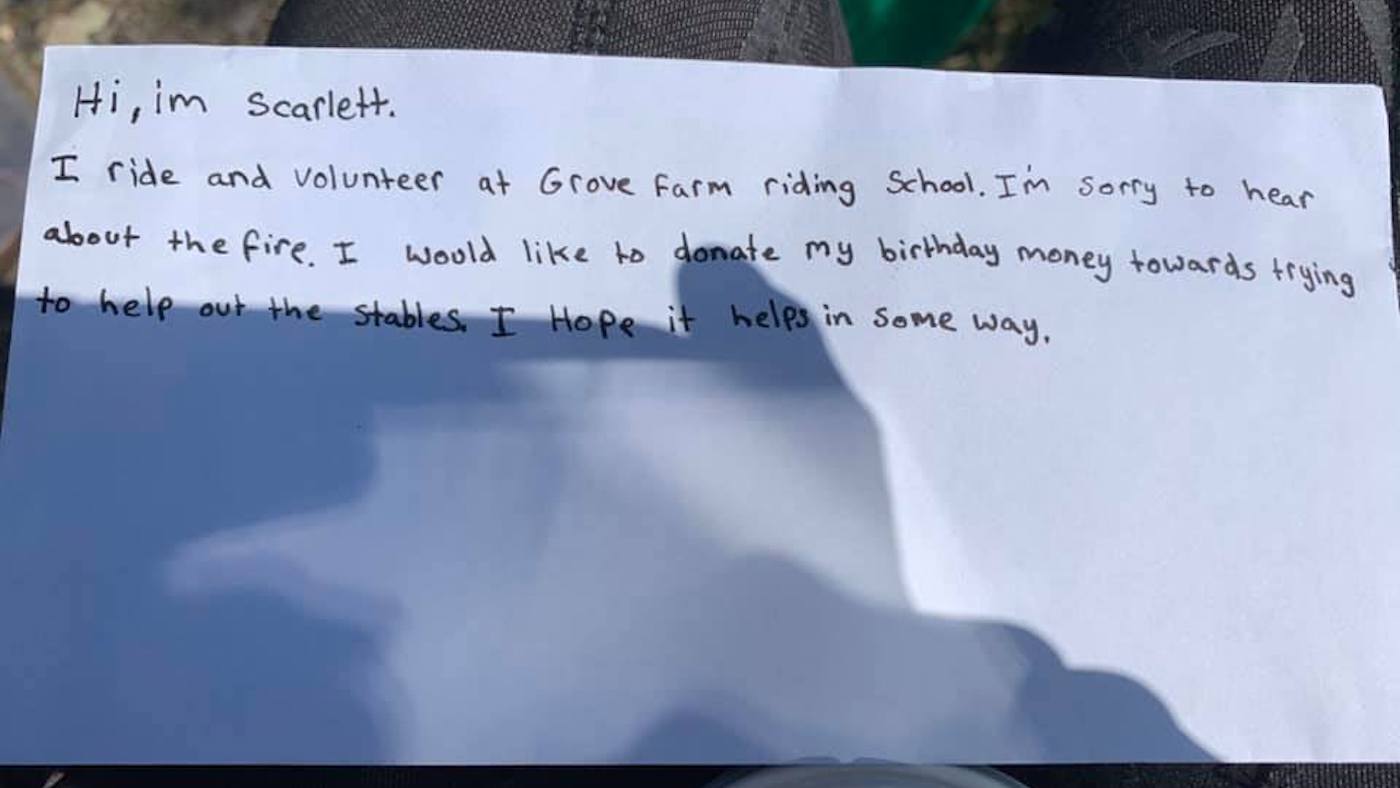 Hi, im Scarlett.
I ride and volunteer at Grove Farm riding School. I'm sorry to hear
about the fire. I would like to donate my birthday money towards trying
to help out the stables. I Hope it helps in some way.